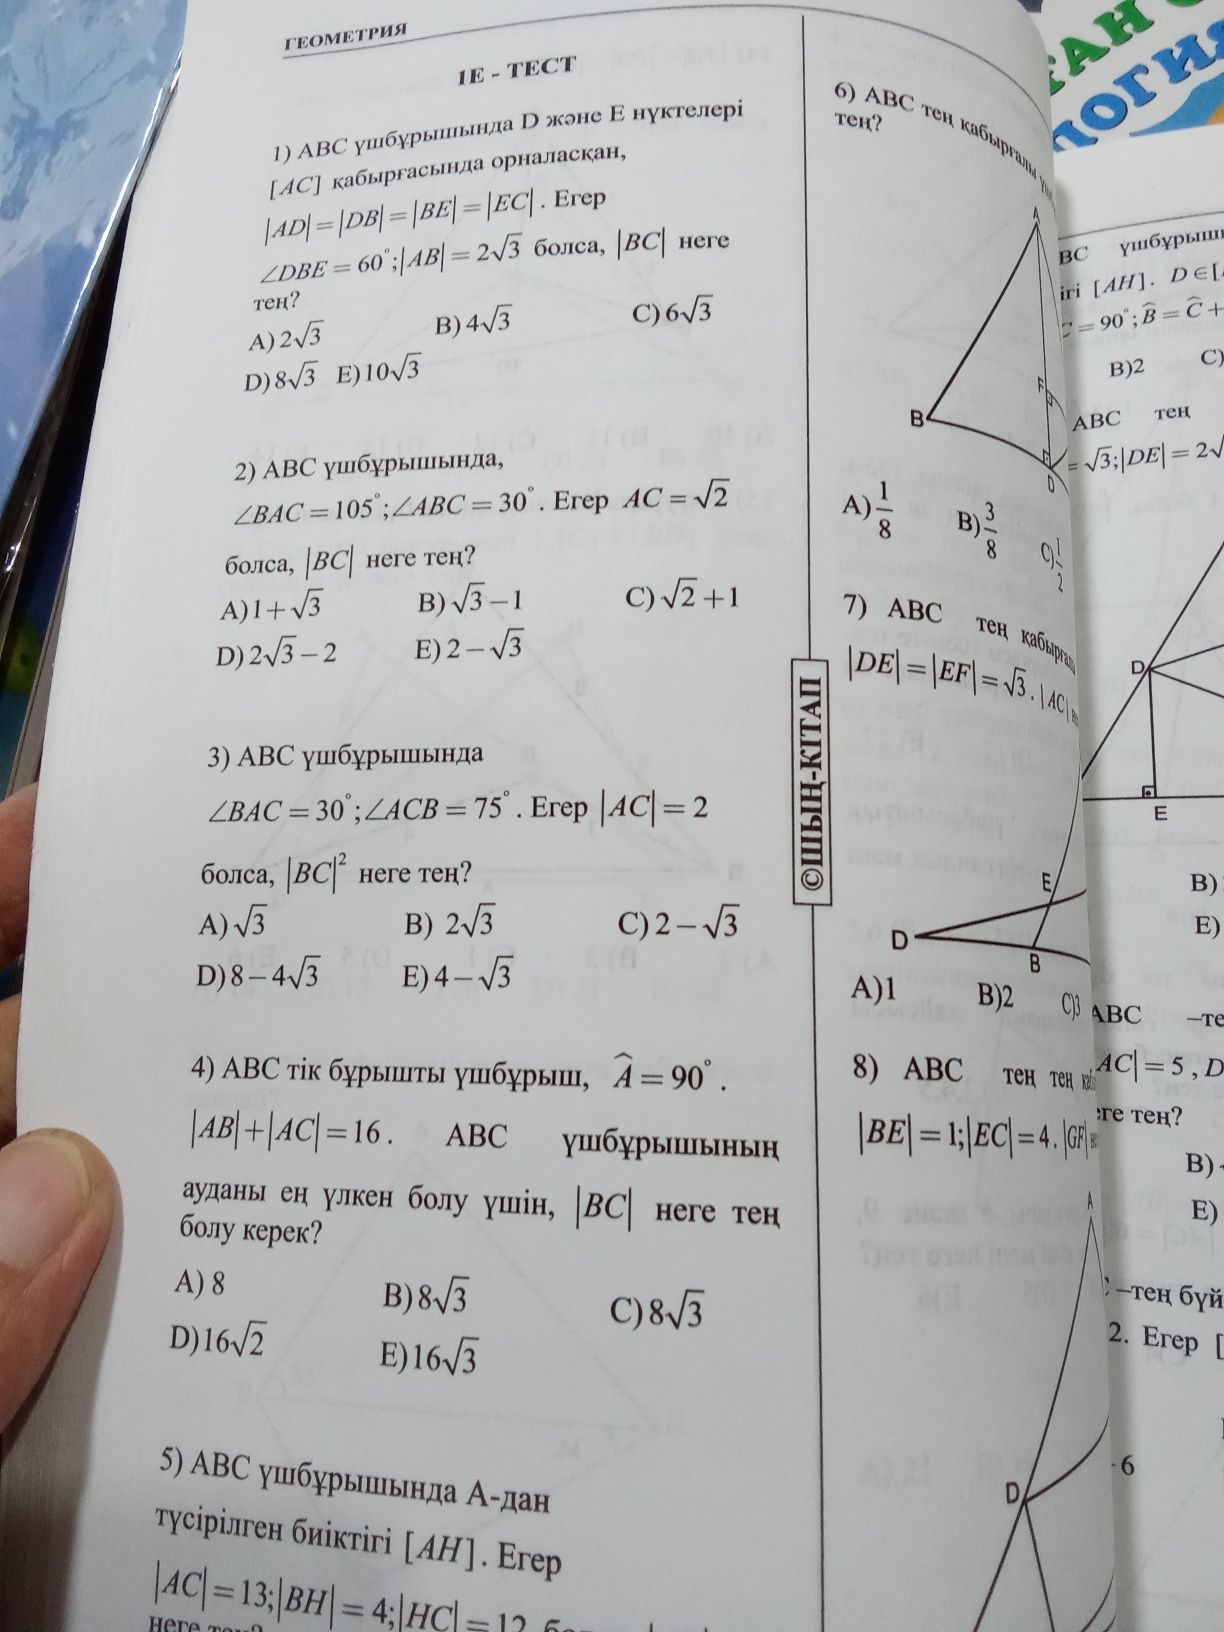 ГЕОМЕТРИЯ
1Е - ТЕСТ
1) ABC үшбұрышында D және E нүктелері
[AC] қабырғасында орналасқан,
|AD| = |DB| = |BE| = |EC| . Егер
∠DBE = 60°;|AB| = 2√3 болса, |BC| неге
тең?
A) 2√3 B) 4√3 C) 6√3
D) 8√3 E) 10√3
2) ABC үшбұрышында,
∠BAC = 105°;∠ABC = 30° . Егер AC = √2
болса, |BC| неге тең?
A) 1+√3 B) √3 – 1 C) √2 +1
D) 2√3 – 2 E) 2 – √3
3) ABC үшбұрышында
∠BAC = 30°;∠ACB = 75° . Егер |AC| = 2
болса, |BC|² неге тең?
A) √3 B) 2√3 C) 2 – √3
D) 8 – 4√3 E) 4 – √3
4) ABC тік бұрышты үшбұрыш, Â = 90° .
|AB|+|AC| = 16 . ABC үшбұрышының
ауданы ең үлкен болу үшін, |BC| неге тең
болу керек?
A) 8 B) 8√3 C) 8√3
D) 16√2 E) 16√3
5) ABC үшбұрышында А-дан
түсірілген биіктігі [AH] . Егер
|AC| = 13;|BH| = 4;|HC| = 12
неге
©ШЫҢ-КІТАП
6) ABC тең қабырғалы
тең?
A
B
F
D
A) 1/8 B) 3/8 C) 1/2
7) ABC тең
|DE| = |EF| = √3 . |AC|
E
D
B
A)1 B)2 C)3
8) ABC тең тең
|BE| = 1;|EC| = 4 . |GF|
A
D
ҒАН
ЛОГИЯ
BC
[AH] . D ∈ [
= 90°; B̂ = Ĉ +
B)2 C)
ABC тең
= √3;|DE| = 2√
D
E
B)
E)
ABC –те
AC| = 5 , D
тең?
B)
E)
–тең
2. Егер [
6